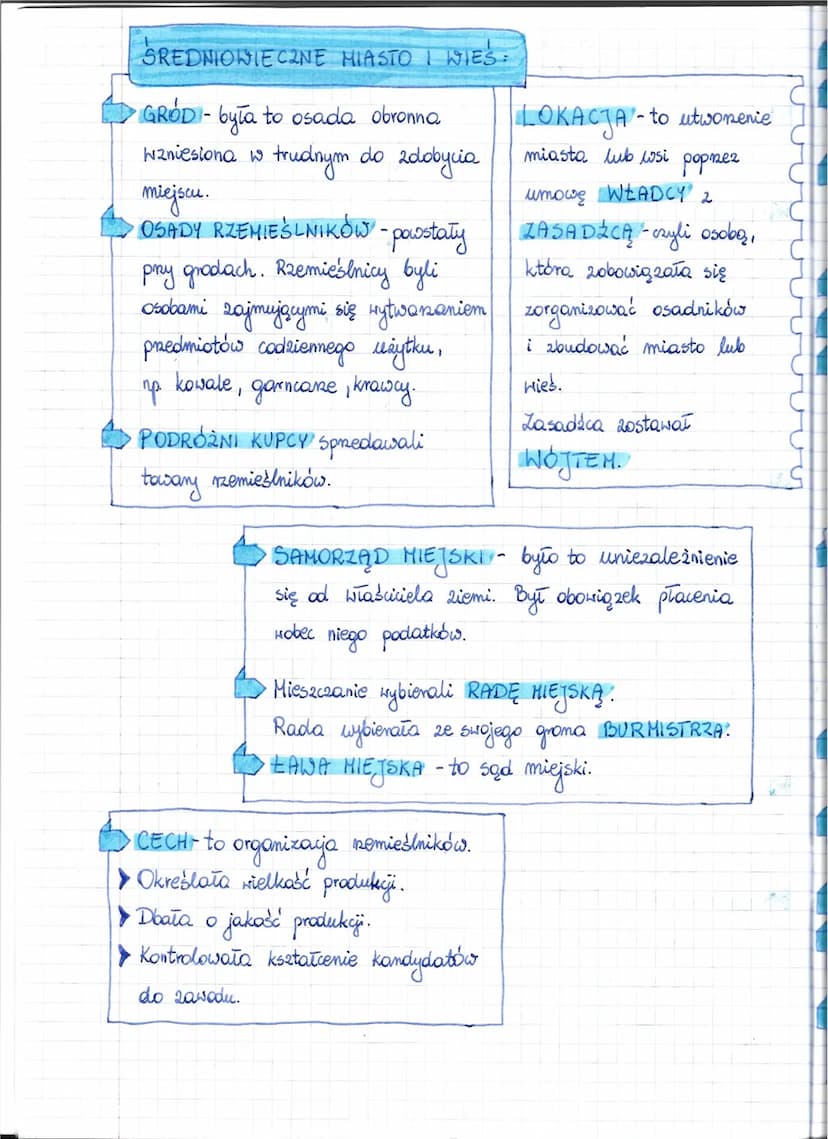 ŚREDNIOWIECZNE MIASTO I WIEŚ:
GRÓD - była to osada obronna
wzniesiona w trudnym do zdobycia
miejscu.
OSADY RZEMIEŚLNIKÓW - powstały
przy grodach. Rzemieślnicy byli
osobami zajmującymi się wytwarzaniem
przedmiotów codziennego użytku,
np. kowale, garncarze, krawcy.
PODRÓŻNI KUPCY sprzedawali
towary rzemieślników.
LOKACJA - to utworzenie
miasta lub wsi poprzez
umowę WŁADCY z
ZASADŹCĄ - czyli osobą,
która zobowiązała się
zorganizować osadników
i zbudować miasto lub
wieś.
Zasadźca zostawał
WÓJTEM.
SAMORZĄD MIEJSKI - było to uniezależnienie
się od właściciela ziemi. Był obowiązek płacenia
wobec niego podatków.
Mieszczanie wybierali RADĘ MIEJSKĄ.
Rada wybierała ze swojego grona BURMISTRZA.
ŁAWA MIEJSKA - to sąd miejski.
CECH - to organizacja rzemieślników.
Określała wielkość produkcji.
Dbała o jakość produkcji.
Kontrolowała kształcenie kandydatów
do zawodu.